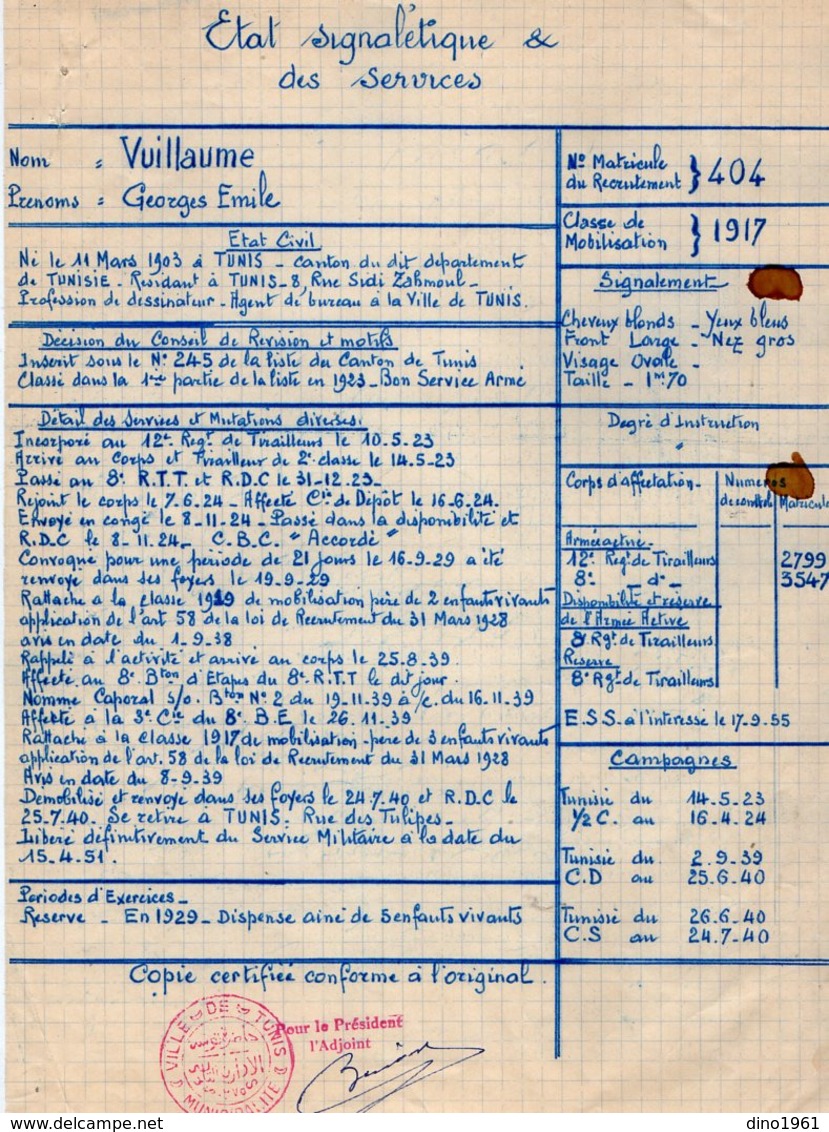 Etat signalétique &
des services
Nom = Vuillaume
Prenoms = Georges Emile
Etat Civil
Né le 11 Mars 1903 à TUNIS - canton du dit departement
de TUNISIE - Residant à TUNIS-8, Rue Sidi Zahmoul -
Profession de dessinateur - Agent de bureau à la Ville de TUNIS.
Décision du Conseil de Revision et motifs
Inscrit sous le N° 245 de la liste du Canton de Tunis
Classé dans la 1ère partie de la liste en 1923 - Bon Service Armé
Détail des services et Mutations diverses.
Incorporé au 12e Regt de Tirailleurs le 10.5.23
Arrivé au corps et Tirailleur de 2e classe le 14.5-23
Passé au 8e R.T.T et R.D.C le 31-12.23-
Rejoint le corps le 7.6.24 - Affecté Cie de Dépôt le 16-6.24.
Envoyé en congé le 8-11.24 - Passé dans la disponibilité et
R.D.C le 8-11.24 - C.B.C. "Accordé"
Convoqué pour une periode de 21 jours le 16-9.29 a été
renvoyé dans ses foyers le 19-9-29
Rattaché à la classe 1919 de mobilisation père de 2 enfants vivants
application de l'art 58 de la loi de Recrutement du 31 Mars 1928
avis en date du 1-9-38
Rappelé à l'activité et arrivé au corps le 25.8-39.
Affecté au 8e Bton d'Etapes du 8e R.T.T le dit jour.
Nommé Caporal s/o. Bton N° 2 du 19-11-39 à/c. du 16-11-39
Affecté à la 3e Cie du 8e B.E le 26.11-39
Rattaché à la classe 1917 de mobilisation - père de 3 enfants vivants
application de l'art. 58 de la loi de Recrutement du 31 Mars 1928
Avis en date du 8-9-39
Démobilisé et renvoyé dans ses foyers le 24.7.40 et R.D.C le
25.7.40. Se retire à TUNIS. Rue des Tulipes -
Liberé définitivement du Service Militaire à la date du
15.4.51.
Periodes d'Exercices -
Reserve - En 1929 - Dispensé ainé de 5 enfants vivants
N° Matricule
du Recrutement } 404
Classe de
Mobilisation } 1917
Signalement
Cheveux blonds - Yeux bleus
Front Large - Nez gros
Visage Ovale -
Taille - 1m70
Degré d'Instruction
"
Corps d'affectation - Numeros
de contrôle Matricule
Armée active -
12e Regt de Tirailleurs 2799
8e d° - 3547
Disponibilité et réserve
de l'Armée Active
8 Rgt de Tirailleurs
Reserve
8e Rgt de Tirailleurs
E.S.S. à l'interessé le 17-9-55
Campagnes
Tunisie du 14.5-23
1/2 C. au 16-4.24
Tunisie du 2-9-39
C.D au 25.6-40
Tunisie du 26.6-40
C.S au 24.7-40
Copie certifiée conforme à l'original.
VILLE DE TUNIS
MUNICIPALITÉ
Pour le Président
l'Adjoint
dino1961